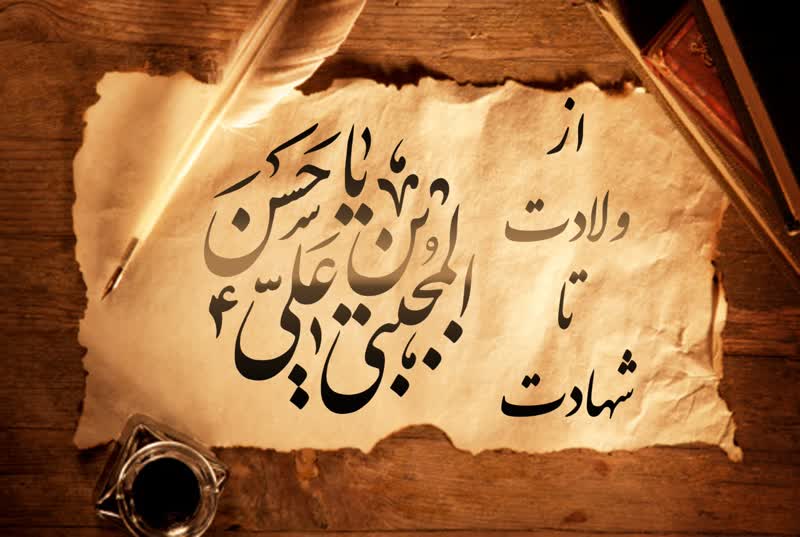 از
ولادت
تا
شهادت
یا حسن
بن علی
المجتبی ع